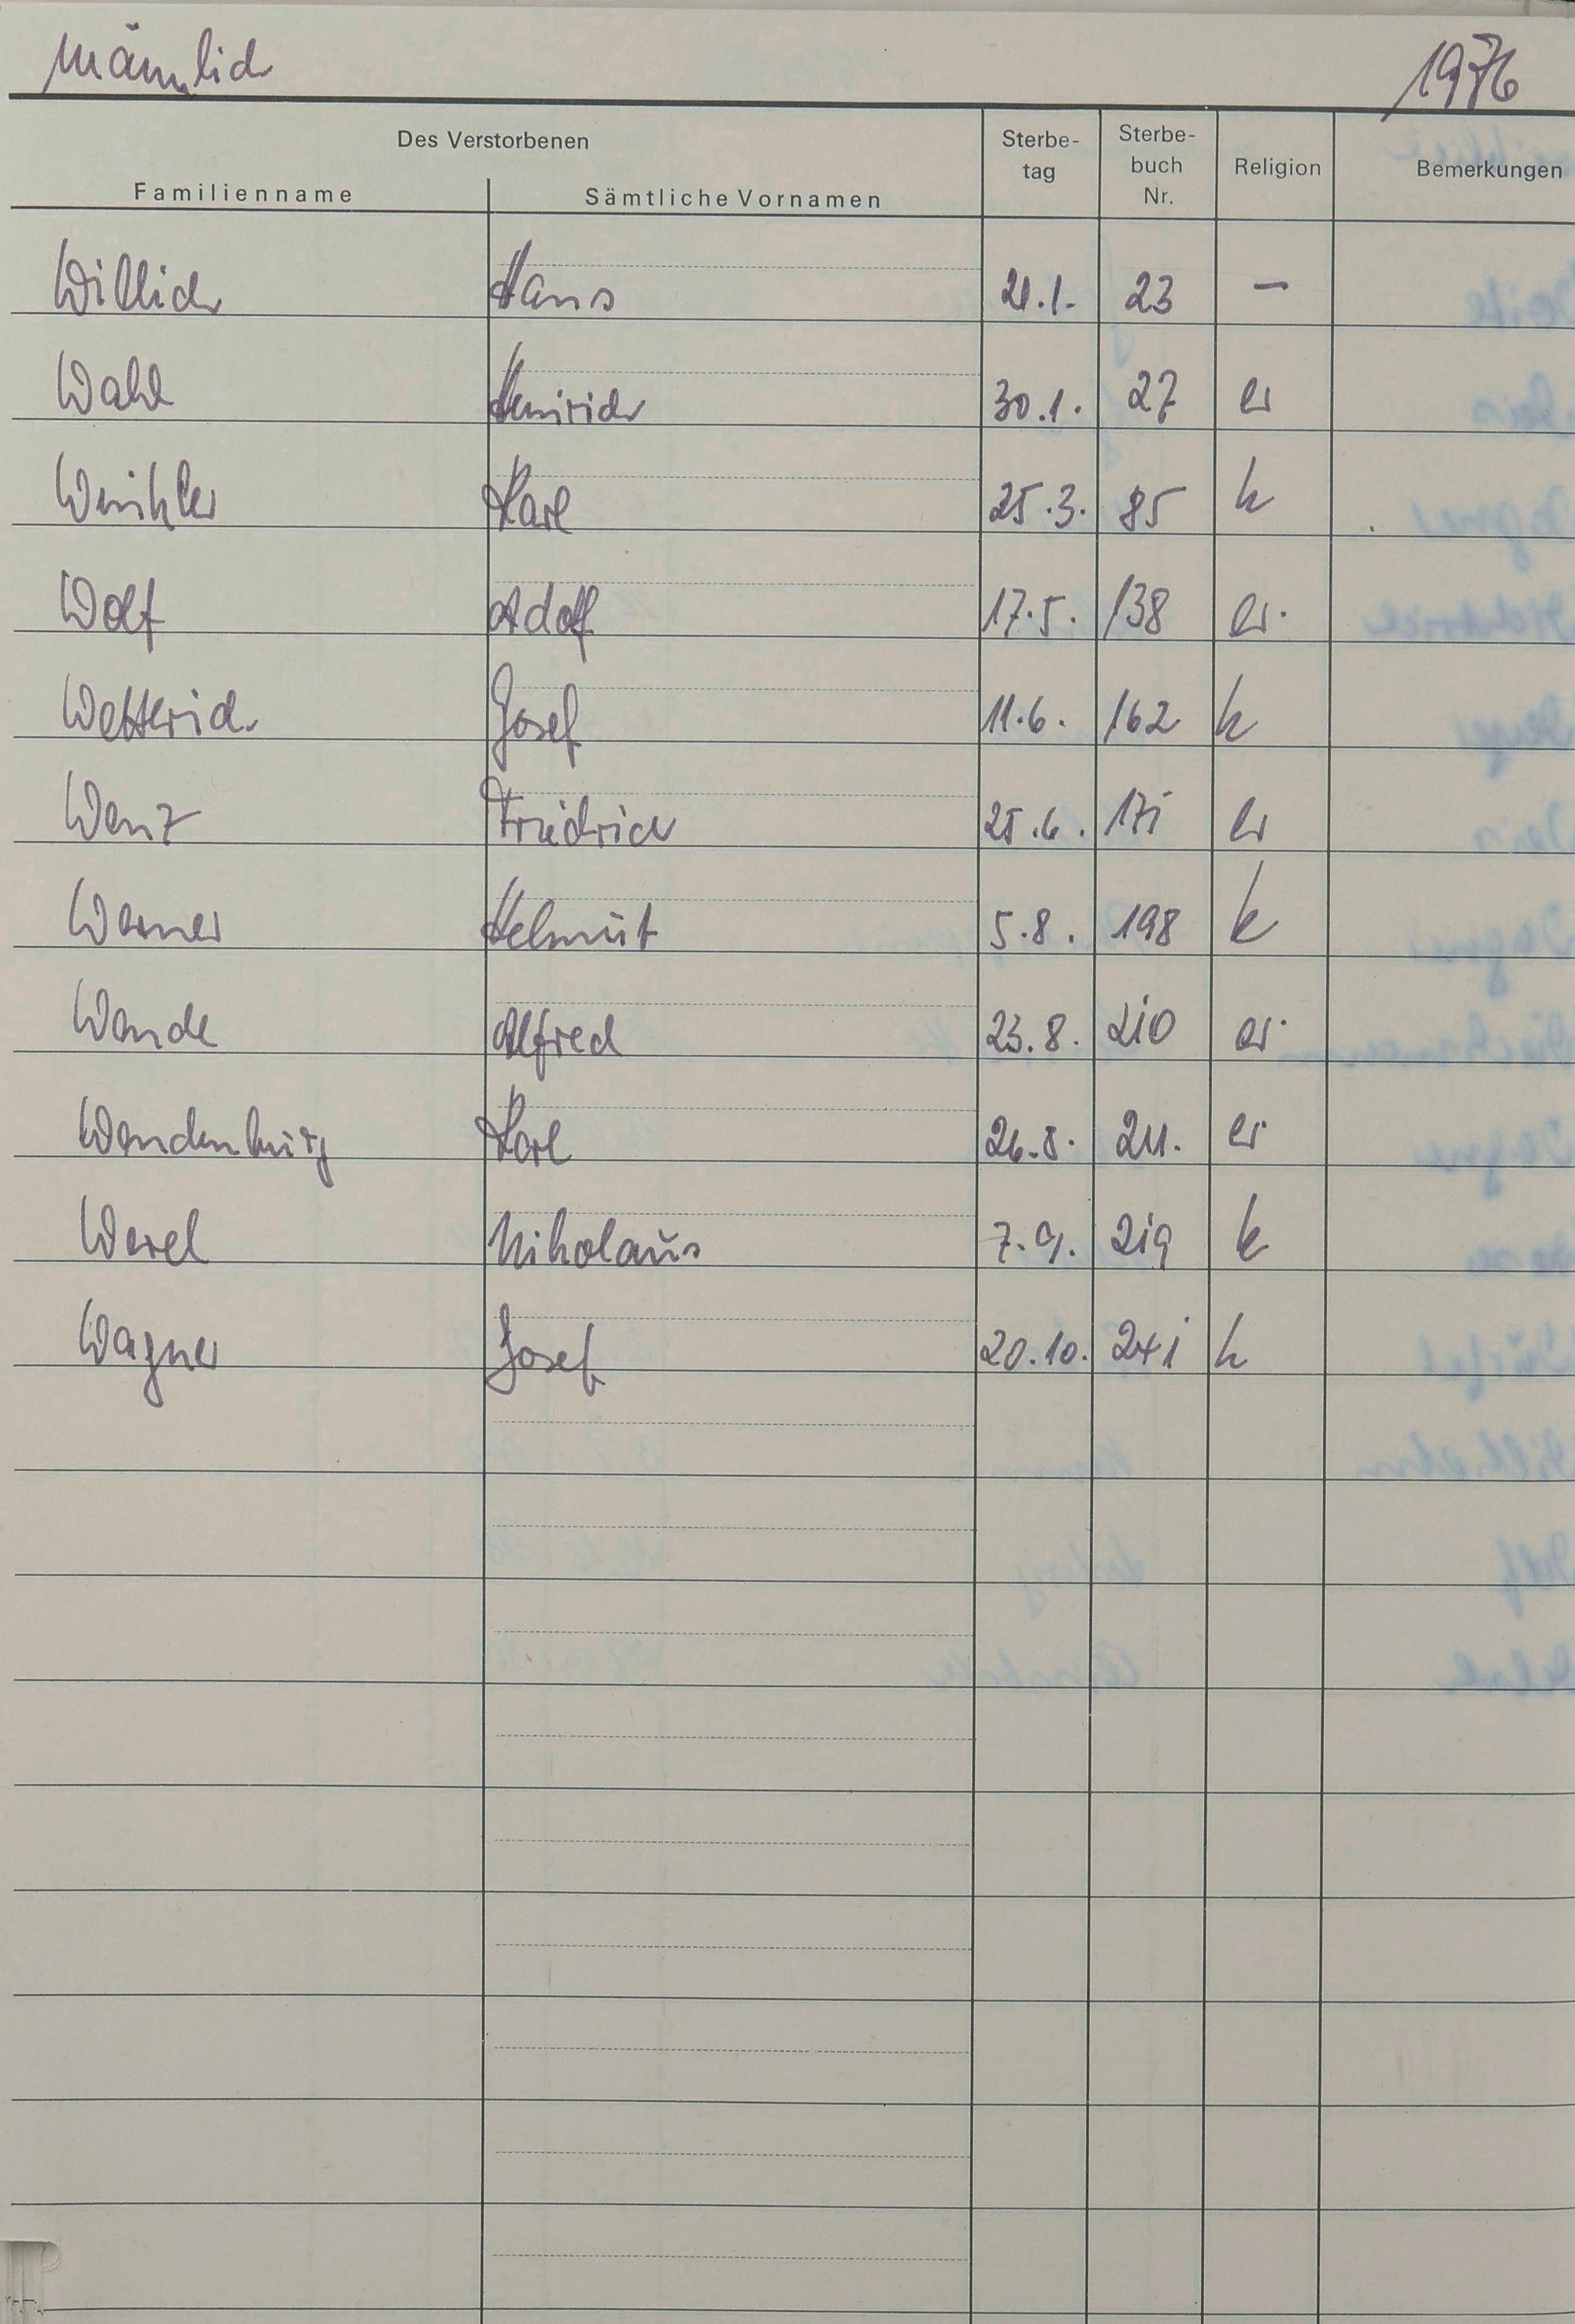 Männlich 1976
Des Verstorbenen
Familienname Sämtliche Vornamen Sterbe-tag Sterbe-buch Nr. Religion Bemerkungen
Willich Hans 21.1. 23 –
Wahl Heinrich 30.1. 27 ev
Winkler Karl 25.3. 85 k
Wolf Adolf 17.5. 138 ev.
Wetterich Josef 11.6. 162 k
Wenz Friedrich 25.6. 171 ev
Werner Helmut 5.8. 198 k
Wende Alfred 23.8. 210 ev.
Wendenburg Karl 26.8. 211. ev
Werel Nikolaus 7.9. 219 k
Wagner Josef 20.10. 241 k